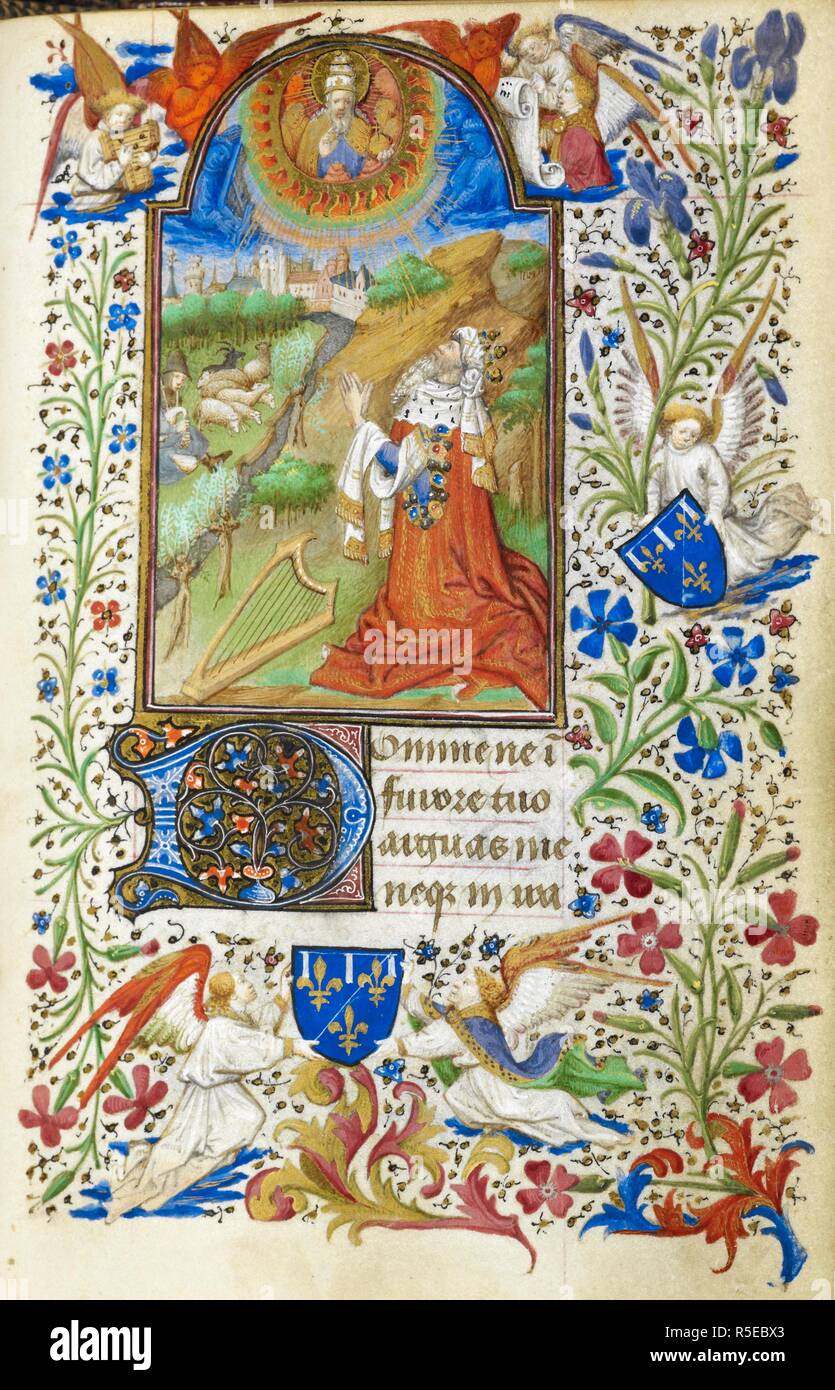 Domine ne i
furore tuo
arguas me
neqz in ira
alamy
Image ID: R5EBX3
www.alamy.com